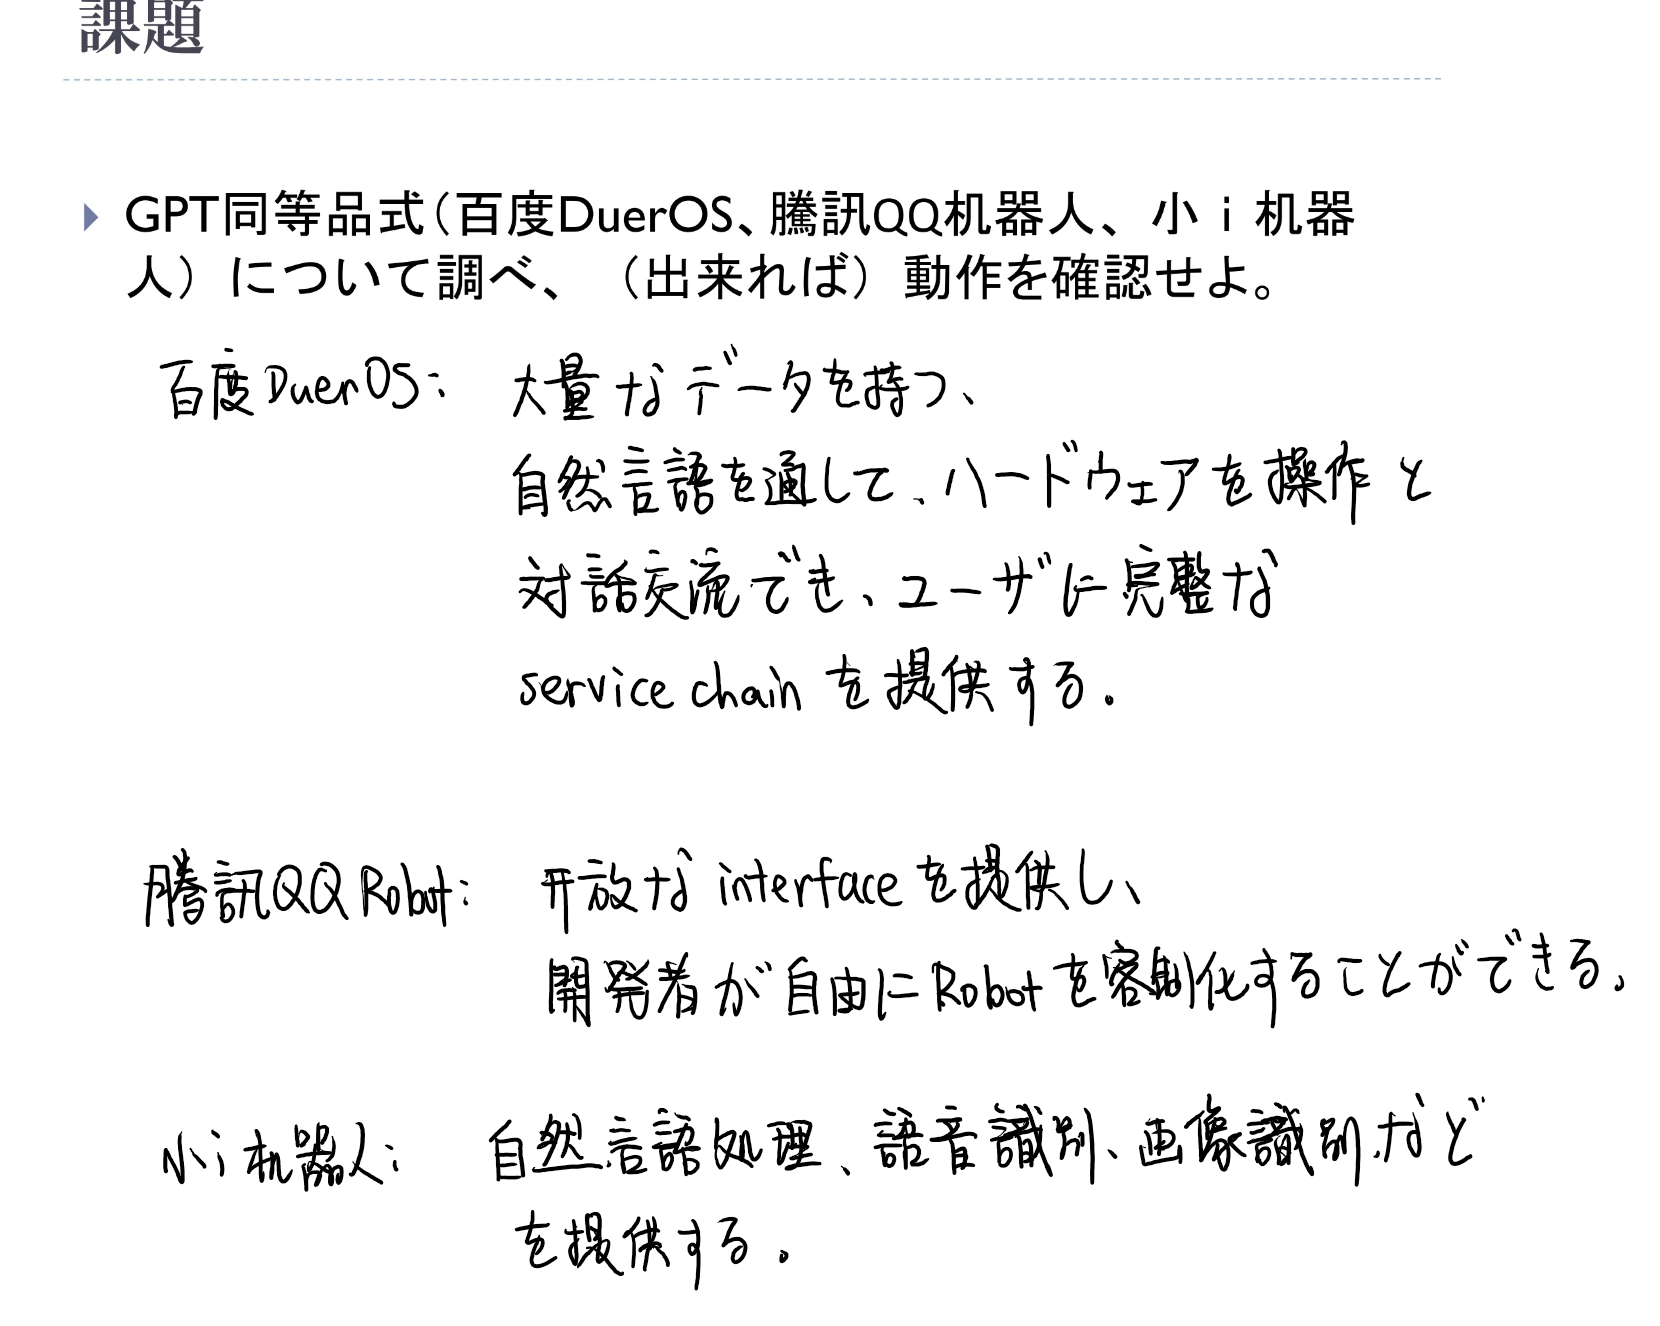 課題
GPT同等品式（百度DuerOS、騰訊QQ机器人、小ｉ机器
人）について調べ、（出来れば）動作を確認せよ。
百度DuerOS： 大量なデータを持つ、
自然言語を通して、ハードウェアを操作と
対話交流でき、ユーザに完整な
service chainを提供する。
騰訊QQ Robot： 开放なinterfaceを提供し、
開発者が自由にRobotを客制化することができる。
小i机器人： 自然言語処理、語音識別、画像識別など
を提供する。